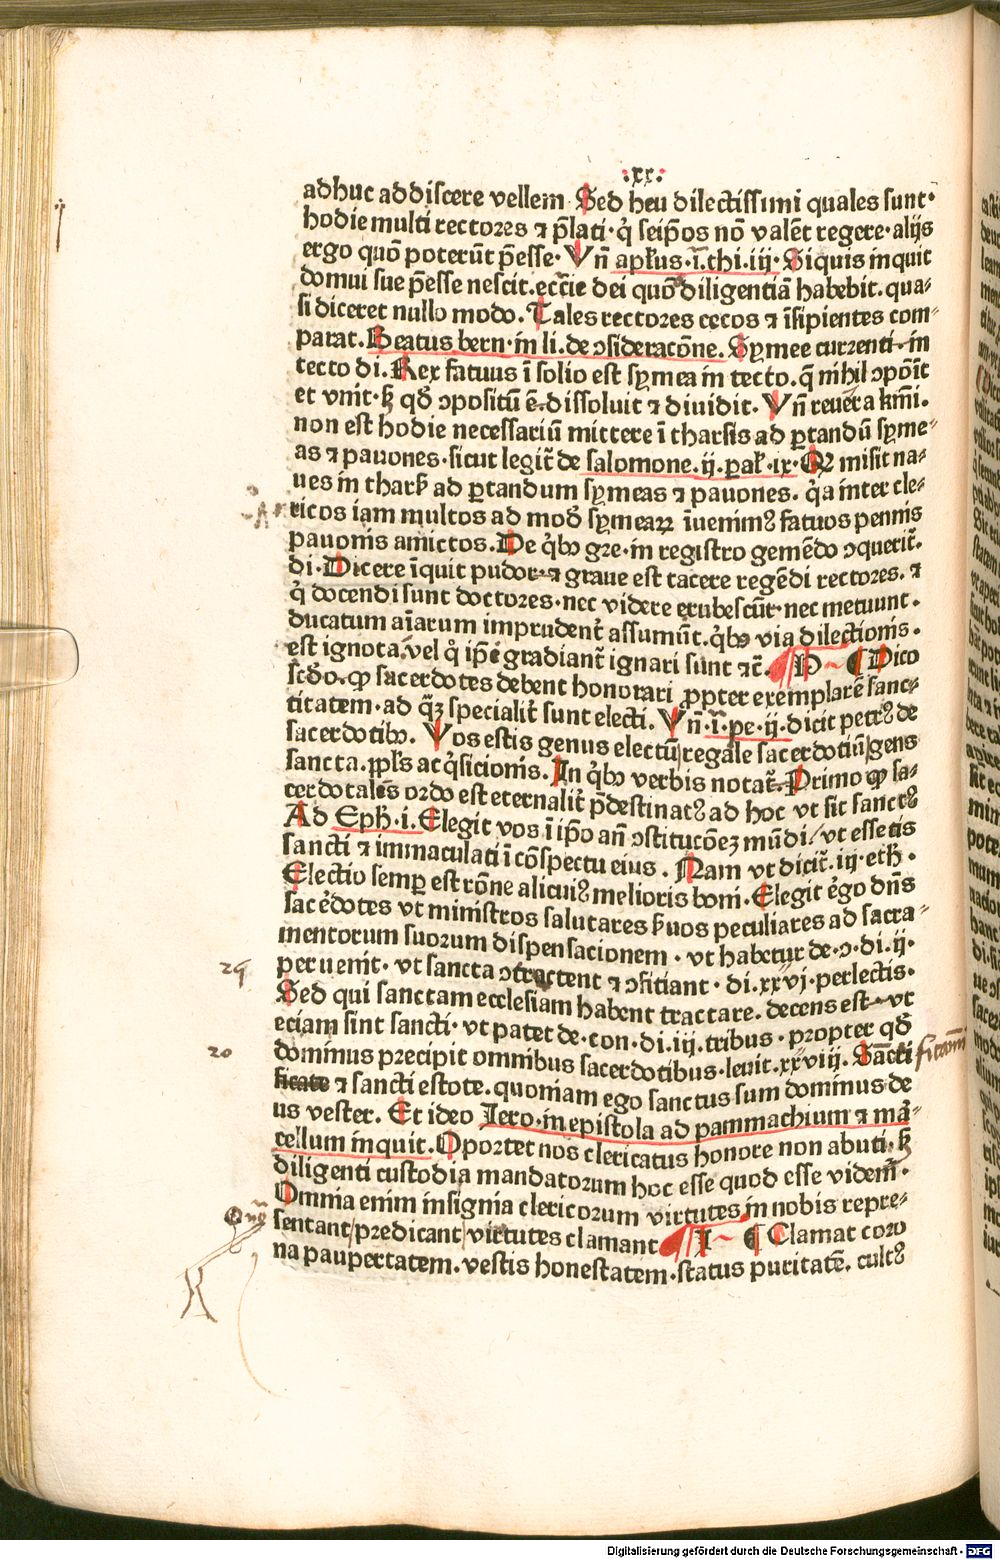 .xx.
adhuc addiscere vellem Sed heu dilectissimi quales sunt·
hodie multi rectores ⁊ p̄lati· q̇ seip̄os nō valēt regere· alijs
ergo quō poterūt p̄esse· Vn̄ apl̄us· i.thi.iij· Si quis inquit
domui sue p̄esse nescit. ecc̄ie dei quō diligentiā habebit. qua⸗
si diceret nullo modo. Tales rectores cecos ⁊ īsipientes com⸗
parat. Beatus bern· in li. de ꝯsideracōne. Symee currenti in
tecto di. Rex fatuus ī solio est symea in tecto. q̄ nihil ꝯpōit
et vnit· ꝭ qð ꝯpositū ē. dissoluit ⁊ diuidit. Vn̄ reuera km̄i.
non est hodie necessariū mittere ī tharsis ad ꝑtandū syme⸗
as ⁊ pauones· sicut legit̄ de salomone. ij. pał· ix· Q misit na⸗
ues in tharꝭ ad ꝑtandum symeas ⁊ pauones. q̇a inter cle⸗
ricos iam multos ad moð symeaꝝ īuenimꝰ fatuos pennis
pauonis amictos. De q̇bꝫ gre· in registro gemēdo ꝯquerit̄.
di· Dicere īquit pudor· ⁊ graue est tacere regēdi rectores. ⁊
q̇ docendi sunt doctores· nec videre erubescūt· nec metuunt.
ducatum aīarum imprudent̄ assumūt. q̇bꝫ via dilectionis.
est ignota. vel q̇ ip̄i gradiant̄ ignari sunt ⁊c̄. P ¶ Dico
scðo. ꝙ sacerdotes debent honorari ꝓpter exemplarē sanc⸗
titatem· ad q̄ꝫ specialit̄ sunt electi. Vn̄· i· pe· ij· dicit petrꝰ de
sacerdotibꝫ. Vos estis genus electū/ regale sacerdotiū/ gens
sancta. ppl̄s acq̇sicionis. In q̇bꝫ verbis notat̄. Primo ꝙ sa⸗
cerdotalis ordo est eternalit̄ p̄destinatꝰ ad hoc vt sit sanctꝰ
Ad Eph. i. Elegit vos ī ip̄o an̄ ꝯstitucōeꝫ mūdi/ vt essetis
sancti ⁊ immaculati ī cōspectu eius. Nam vt dicit̄. iij· eth·
Electio semꝑ est rōne alicuiꝰ melioris boni· Elegit ēgo dn̄s
sacēdotes vt ministros salutares ꝭuos peculiares ad sacra⸗
mentorum suorum dispensacionem· vt habetur de· ꝯ· di. ij·
peruenit· vt sancta ꝯtractent ⁊ ꝯficiant· di. xxvj· perlectis·
Sed qui sanctam ecclesiam habent tractare. decens est vt
eciam sint sancti· vt patet de· con· di. iij. tribus· propter qð
dominus precipit omnibus sacerdotibus· leuit. xxviij. Sācti
ficate ⁊ sancti estote. quoniam ego sanctus sum dominus de
us vester. Et ideo Jero· in epistola ad pammachium ⁊ ma̅⸗
cellum inquit. Oportet nos clericatus honore non abuti· ꝭ
diligenti custodia mandatorum hoc esse quod esse videm̄·
Omnia enim insignia clericorum virtutes in nobis repre⸗
sentant/ predicant/ virtutes clamant I ¶ Clamat coro
na paupertatem. vestis honestatem· status puritatē. cultꝰ
29
20
K
Digitalisierung gefördert durch die Deutsche Forschungsgemeinschaft - DFG